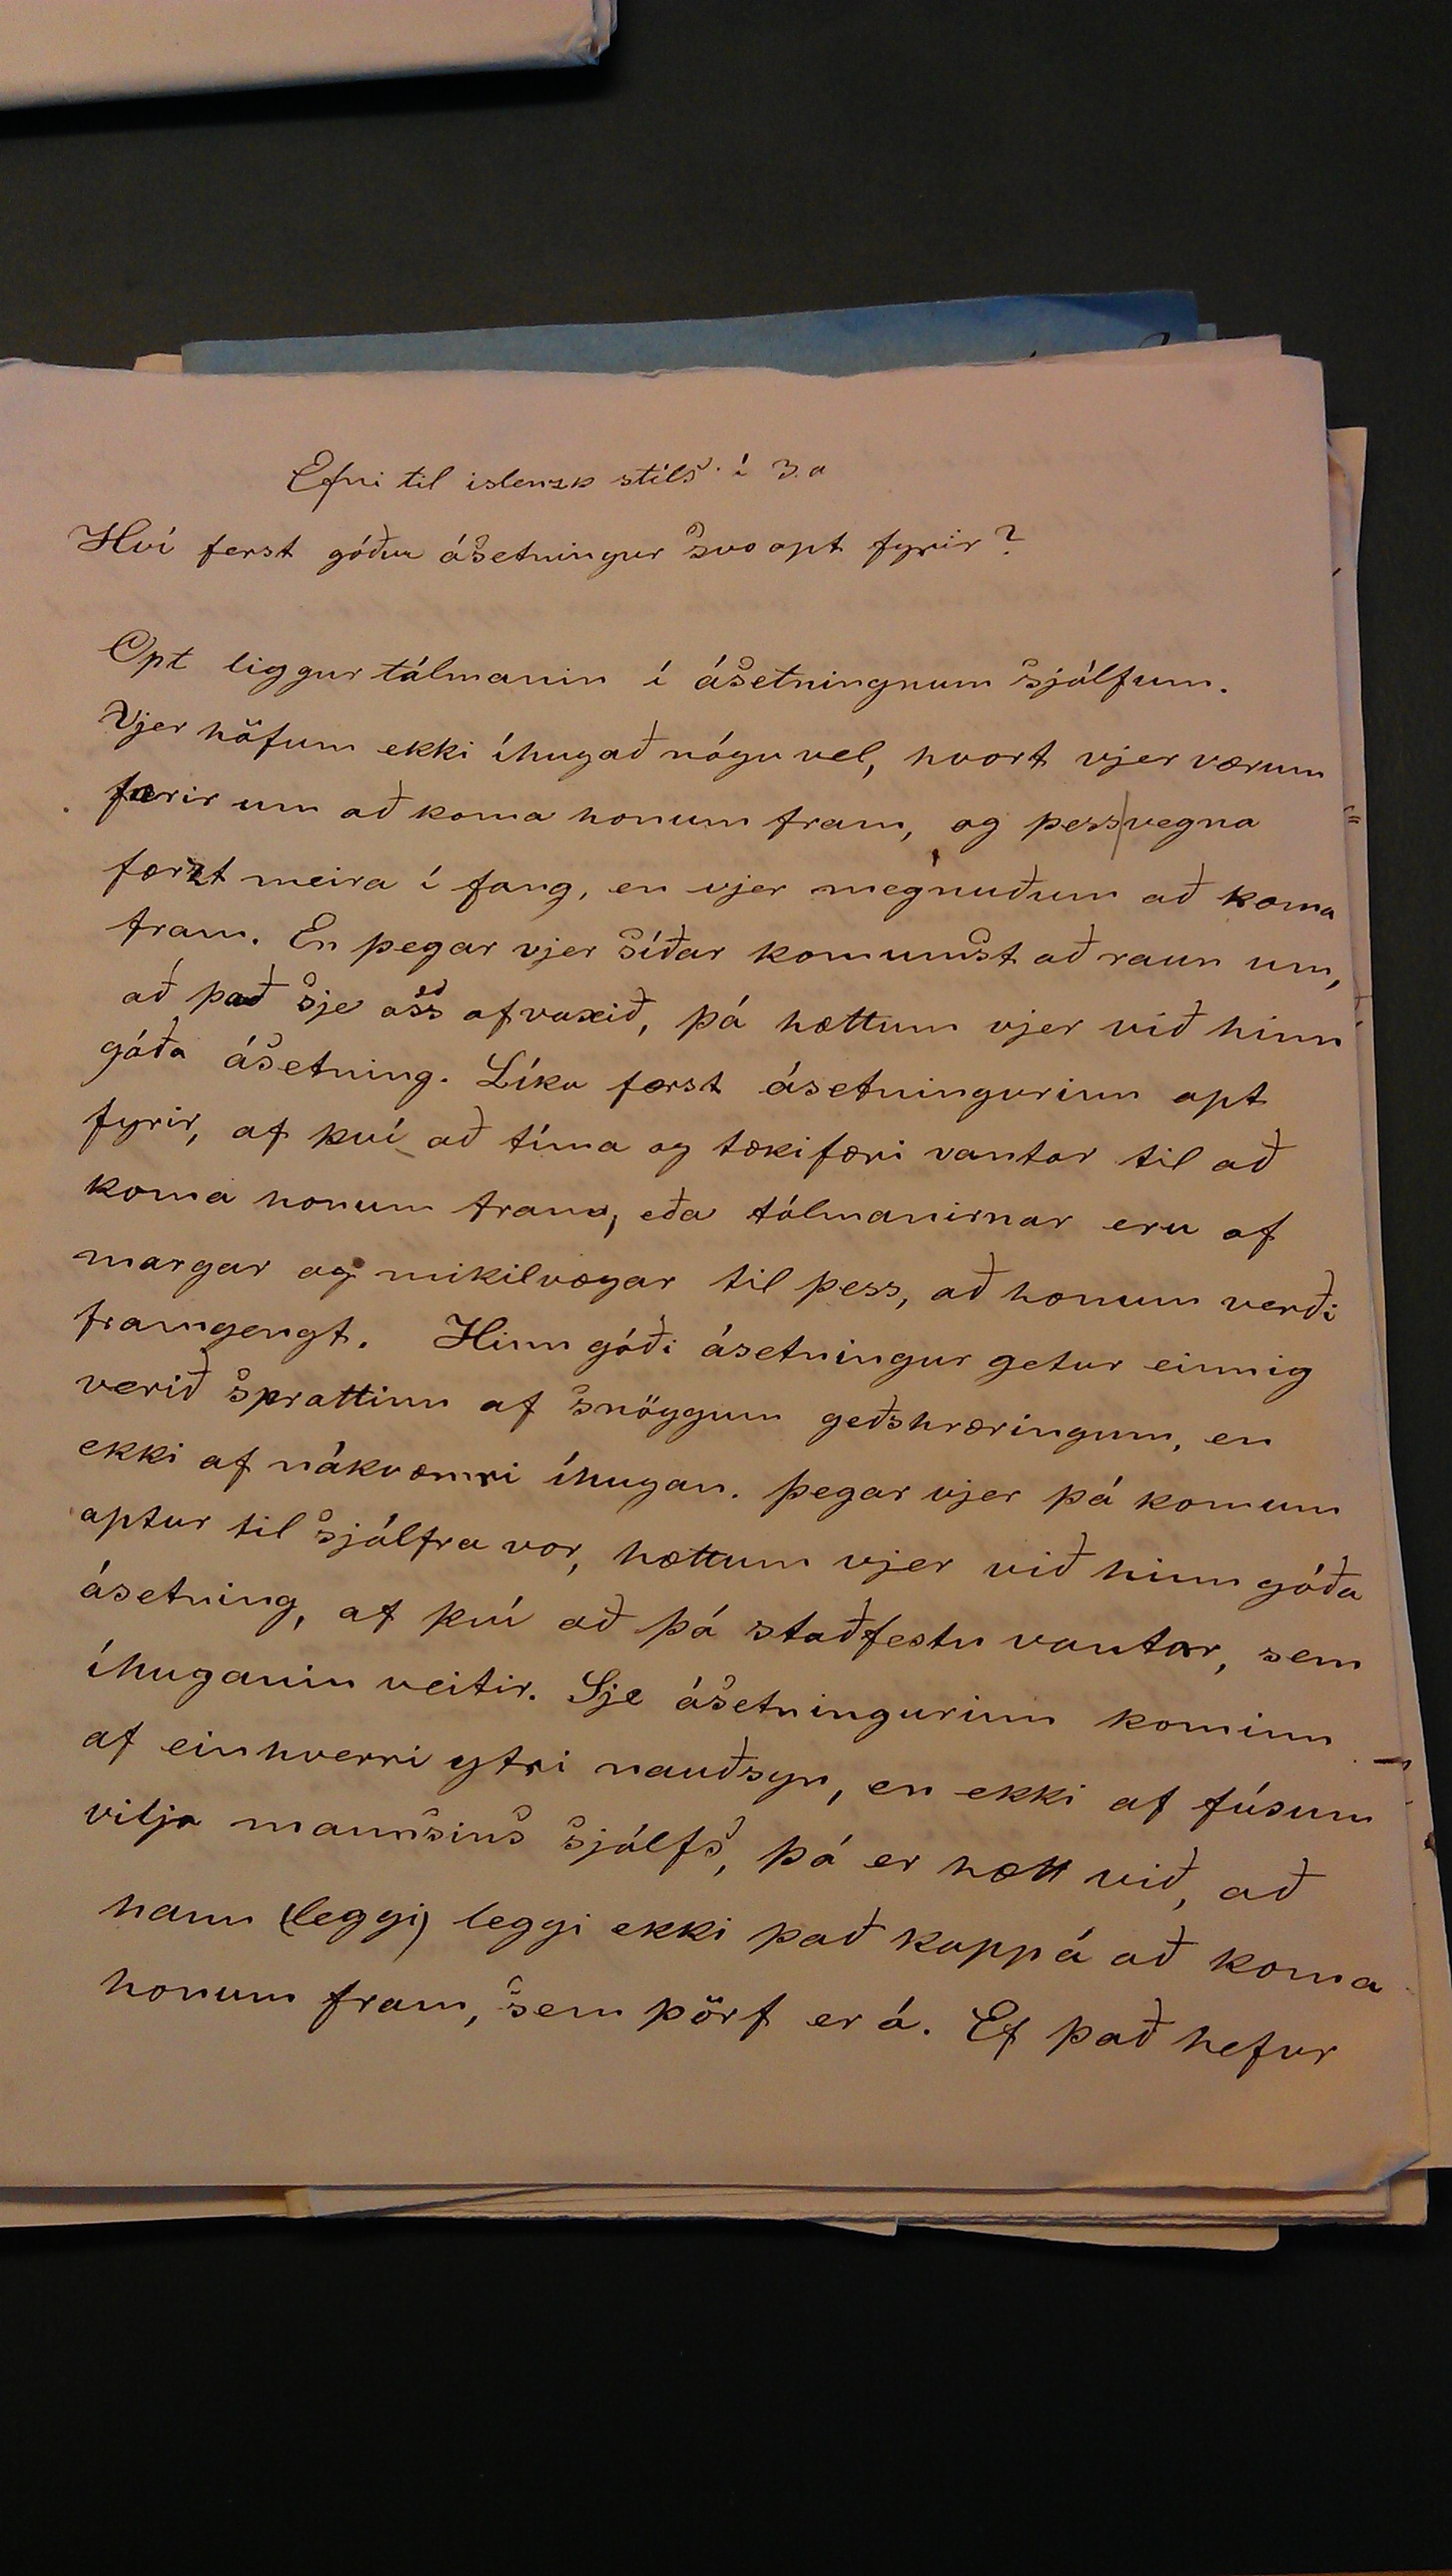 Efni til islenzk stíls í 3. a
Hví ferst góður ásetningur svo opt fyrir?
Opt liggur tálmanin í ásetningnum sjálfum.
Vjer höfum ekki íhugað nógu vel, hvort vjer værum
færir um að koma honum fram, og þess|vegna
færzt meira í fang, en vjer megnuðum að koma
fram. En þegar vjer síðar komumst að raun um,
að það sje oss ofvaxið, þá hættum vjer við hinn
góða ásetning. Líka ferst ásetningurinn opt
fyrir, af því að tíma og tækifæri vantar til að
koma honum fram, eða tálmanirnar eru of
margar og mikilvægar til þess, að honum verði
framgengt. Hinn góði ásetningur getur einnig
verið sprottinn af snöggum geðshræringum, en
ekki af nákvæmri íhugan. Þegar vjer þá komum
aptur til sjálfra vor, hættum vjer við hinn góða
ásetning, af því að þá staðfestu vantar, sem
íhuganin veitir. Sje ásetningurinn kominn
af einhverri ytri nauðsyn, en ekki af fúsum
vilja mannsins sjálfs, þá er hætt við, að
hann (leggi) leggi ekki það kapp á að koma
honum fram, sem þörf er á. Ef það hefur